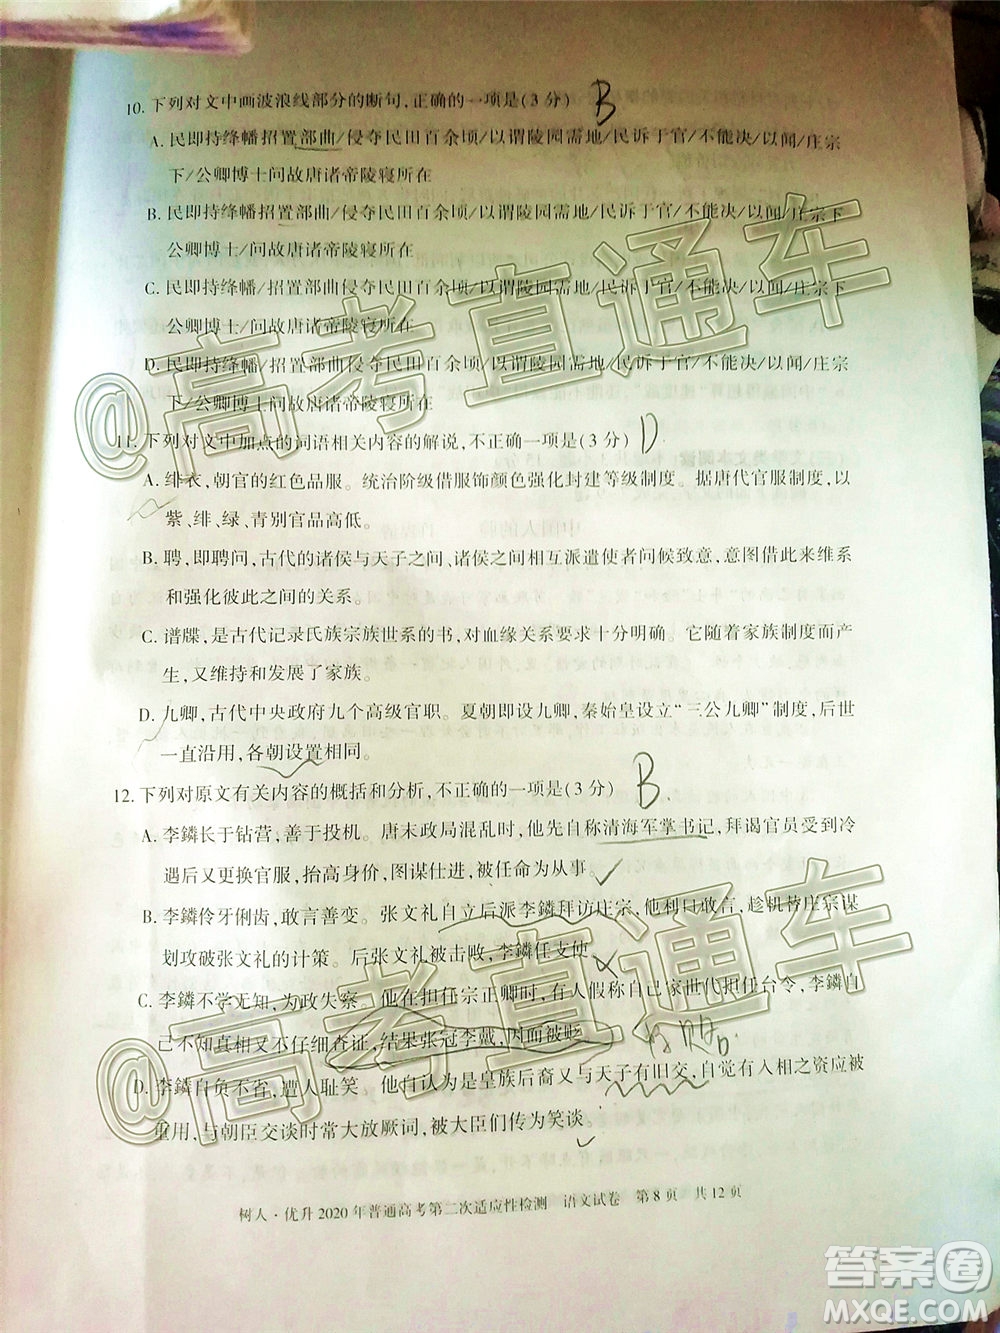 10. 下列对文中画波浪线部分的断句,正确的一项是(3分) B
A. 民即持绛幡招置部曲/侵夺民田百余顷/以谓陵园需地/民诉于官/不能决/以闻/庄宗
下/公卿博士问故唐诸帝陵寝所在
B. 民即持绛幡招置部曲/侵夺民田百余顷/以谓陵园需地/民诉于官/不能决/以闻/庄宗下
公卿博士/问故唐诸帝陵寝所在
C. 民即持绛幡/招置部曲/侵夺民田百余顷/以谓陵园需地/民诉于官/不能决/以闻/庄宗下
公卿博士/问故唐诸帝陵寝所在
D. 民即持绛幡/招置部曲侵夺民田百余顷/以谓陵园需地/民诉于官/不能决/以闻/庄宗
下/公卿博士问故唐诸帝陵寝所在
11. 下列对文中加点的词语相关内容的解说,不正确一项是(3分) D
A. 绯衣,朝官的红色品服。统治阶级借服饰颜色强化封建等级制度。据唐代官服制度,以
紫、绯、绿、青别官品高低。
B. 聘,即聘问,古代的诸侯与天子之间、诸侯之间互相派遣使者问候致意,意图借此来维系
和强化彼此之间的关系。
C. 谱牒,是古代记录氏族宗族世系的书,对血缘关系要求十分明确。它随着家族制度而产
生,又维持和发展了家族。
D. 九卿,古代中央政府九个高级官职。夏朝即设九卿,秦始皇设立“三公九卿”制度,后世
一直沿用,各朝设置相同。
12. 下列对原文有关内容的概括和分析,不正确的一项是(3分) B
A. 李鏻长于钻营,善于投机。唐末政局混乱时,他先自称清海军掌书记,拜谒官员受到冷
遇后又更换官服,抬高身价,图谋仕进,被任命为从事。
B. 李鏻伶牙俐齿,敢言善变。张文礼自立后派李鏻拜访庄宗,他利口敢言,趁机替庄宗谋
划攻破张文礼的计策。后张文礼被击败,李鏻任支使。
C. 李鏻不学无知,为政失察。他在担任宗正卿时,有人假称自己家世代担任台令,李鏻自
己不知真相又不仔细查证,结果张冠李戴,因而被贬。
D. 李鏻自负不省,遭人耻笑。他自认为是皇族后裔又与天子有旧交,自觉有入相之资应被
重用,与朝臣交谈时常大放厥词,被大臣们传为笑谈。
树人·优升2020年普通高考第二次适应性检测 语文试卷 第8页 共12页
@高考直通车
@高考直通车
答案圈
MXQE.COM